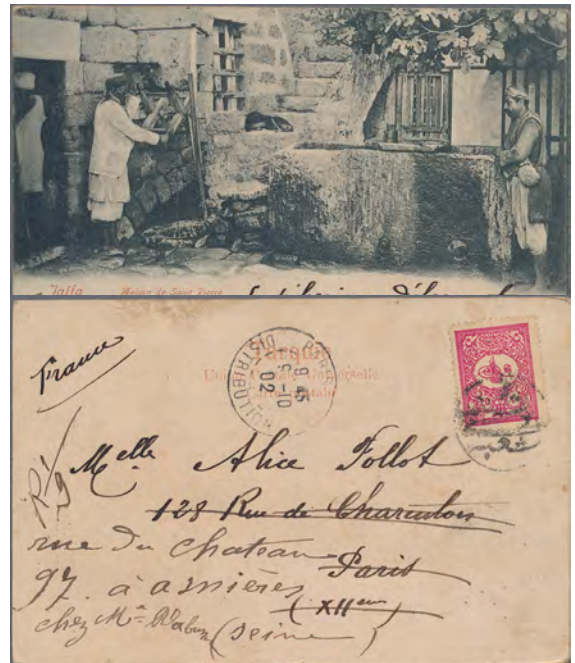 Jaffa Maison de Saint Pierre
France
Turquie
Union Postale Universelle
Carte postale
PARIS
9 45
5 -10
02
DISTRIBUTION
Melle Alice Follot
128 Rue de Charenton
Paris
(XIIeme)
rue du chateau
97. à asnières
chez Mr
(Seine)